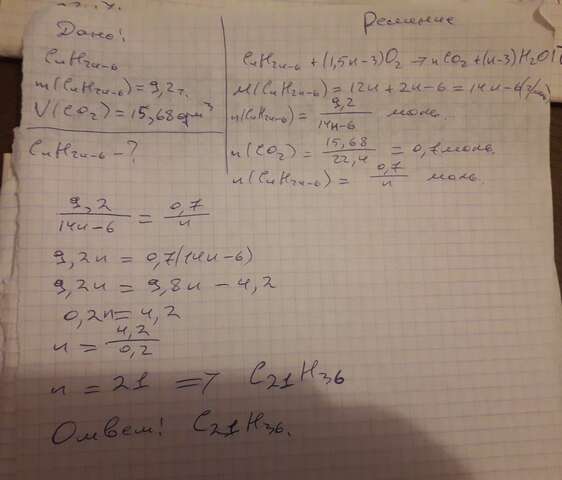 Дано:
CnH2n-6
m(CnH2n-6) = 9,2г.
V(CO2) = 15,68 дм³
CnH2n-6 - ?
Решение
CnH2n-6 + (1,5n-3)O2 → nCO2 + (n-3)H2O
M(CnH2n-6) = 12n + 2n-6 = 14n-6 (г/моль)
n(CnH2n-6) = 9,2/14n-6 моль.
n(CO2) = 15,68/22,4 = 0,7 моль.
n(CnH2n-6) = 0,7/n моль.
9,2/14n-6 = 0,7/n
9,2n = 0,7(14n-6)
9,2n = 9,8n - 4,2
0,2n = 4,2
n = 4,2/0,2
n = 21 => C21H36
Ответ: C21H36.